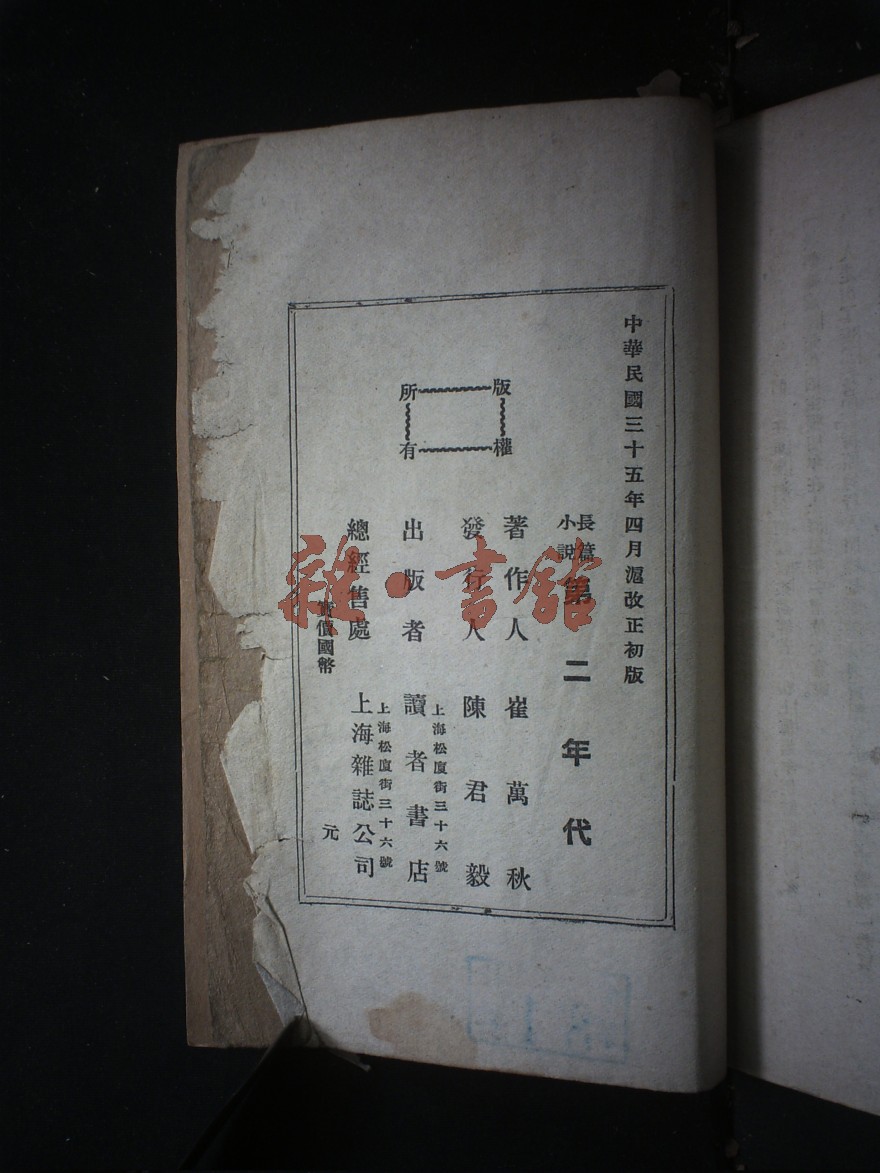 中華民國三十五年四月滬改正初版
長篇小說 第二年代
版權所有
著作人 崔萬秋
發行人 陳君毅
上海松廈街三十六號
出版者 讀者書店
上海松廈街三十六號
總經售處 上海雜誌公司
實價國幣 元
雜·書館